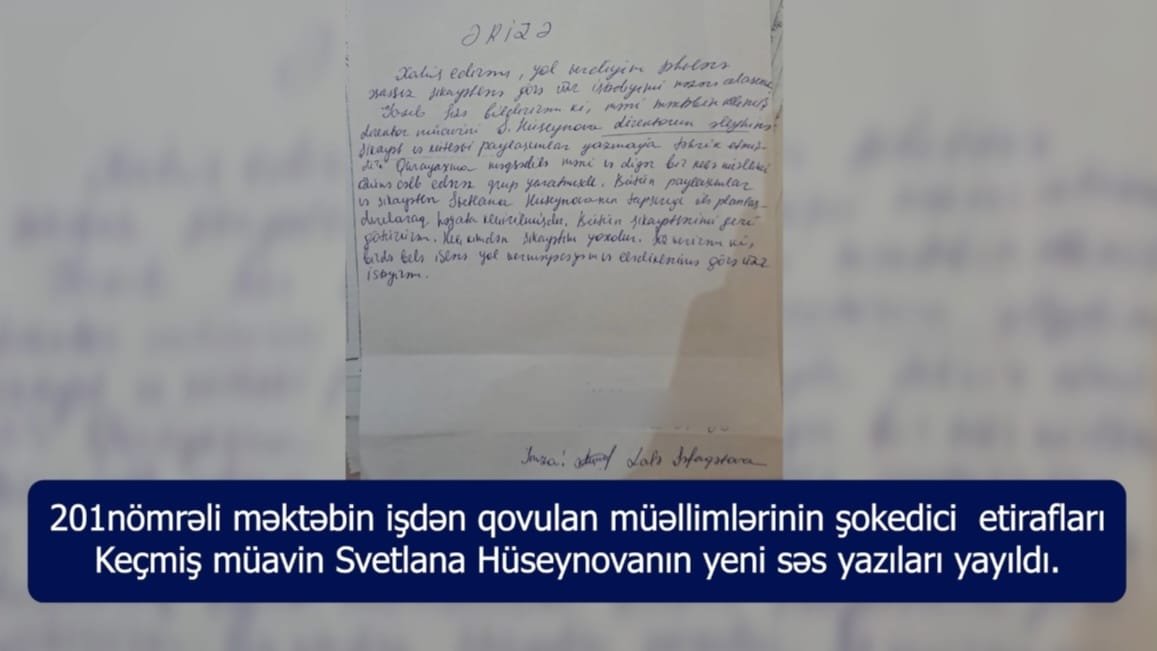 ƏRİZƏ
Xahiş edirəm, yol verdiyim
əsassız şikayətlərə görə üzr istədiyimi nəzərə alasınız
hər bildirirəm ki, məni məktəbin
direktor müavini S. Hüseynova direktorun əleyhinə
şikayət və kütləvi paylaşımlar yazmağa təhrik etmiş-
dir. Qarayaxma məqsədilə məni və digər bir neçə müəllimi
cəlb edərək qrup yaratmışdı. Bütün paylaşımlar
və şikayətlər Svetlana Hüseynovanın tapşırığı ilə planlaş-
dırılaraq həyata keçirilmişdir. Bütün şikayətlərimi geri
götürürəm. Heç kimdən şikayətim yoxdur. Söz verirəm ki,
birdə belə işlərə yol verməyəcəyəm və etdiklərimə görə üzr
istəyirəm.
İmza: Lalə
201nömrəli məktəbin işdən qovulan müəllimlərinin şokedici etirafları
Keçmiş müavin Svetlana Hüseynovanın yeni səs yazıları yayıldı.